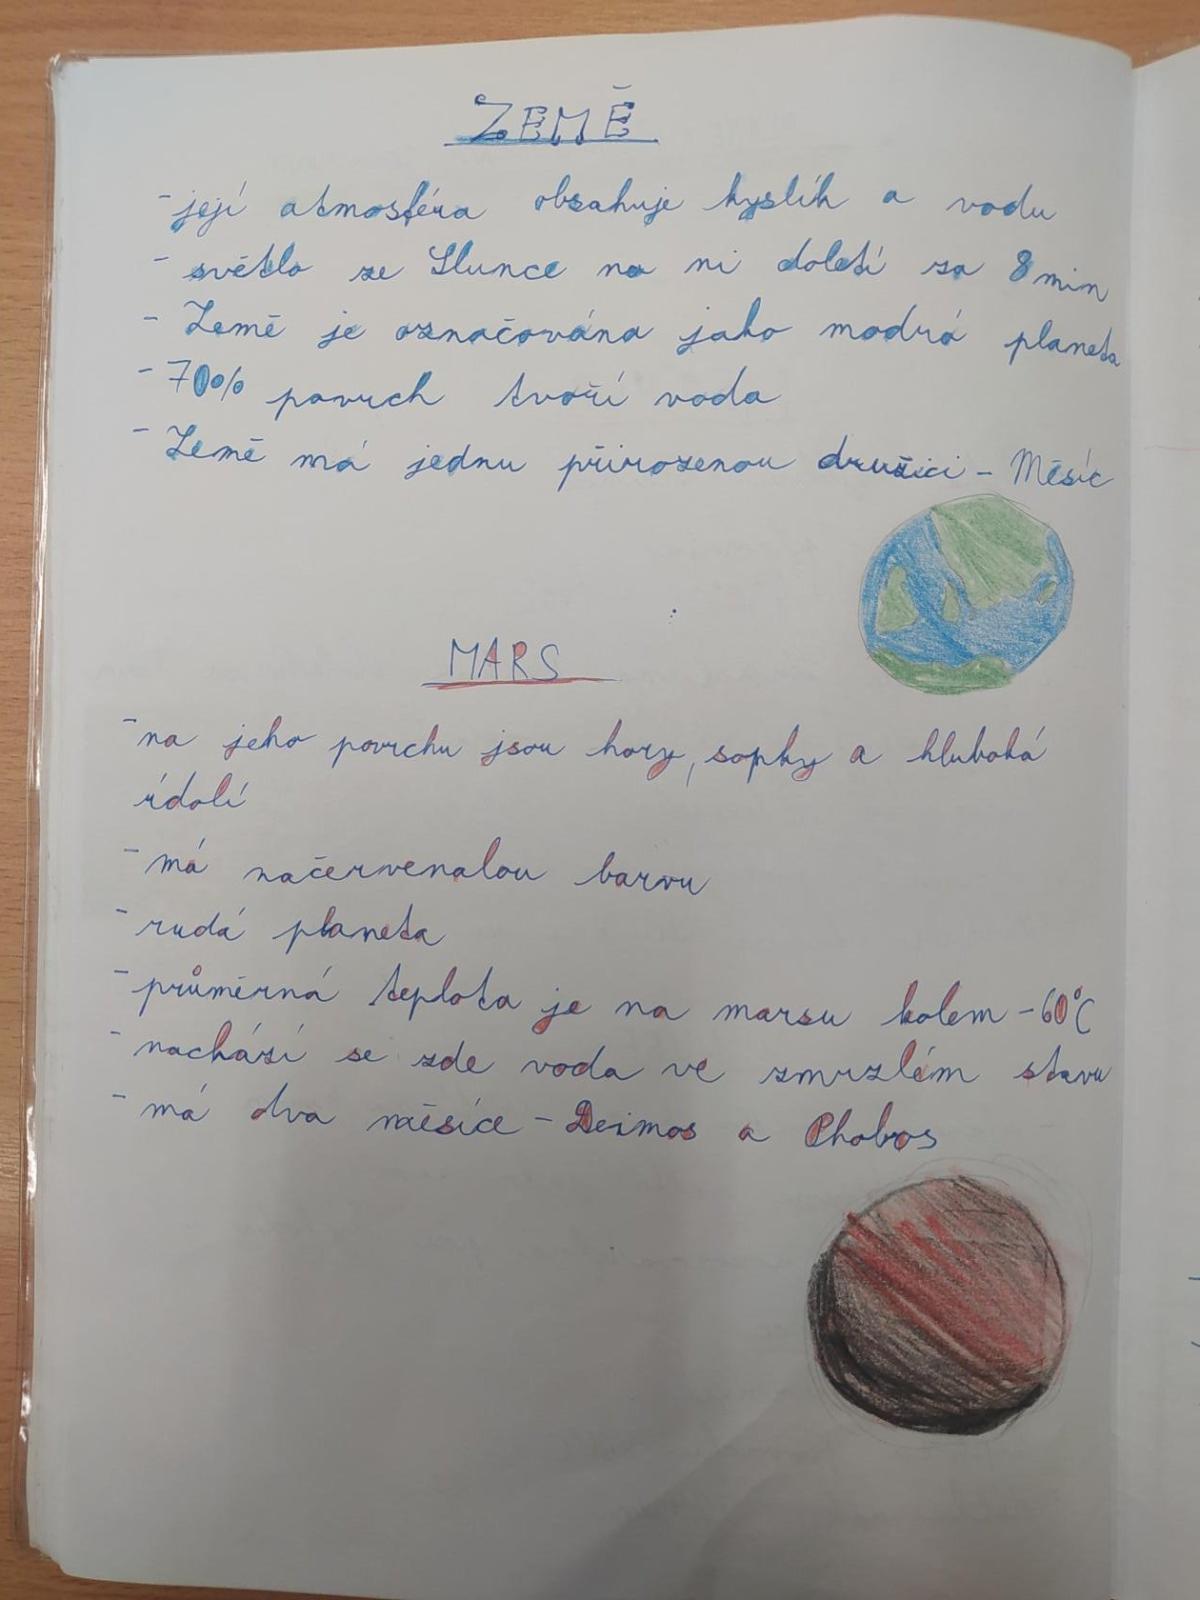 ZEMĚ
- její atmosféra obsahuje kyslík a vodu
- světlo ze Slunce na ni doletí za 8 min
- Země je označována jako modrá planeta
- 70% povrch tvoří voda
- Země má jednu přirozenou družici - Měsíc
MARS
- na jeho povrchu jsou hory, sopky a hluboká
údolí
- má načervenalou barvu
- rudá planeta
- průměrná teplota je na marsu kolem -60°C
- nachází se zde voda ve zmrzlém stavu
- má dva měsíce - Deimos a Phobos